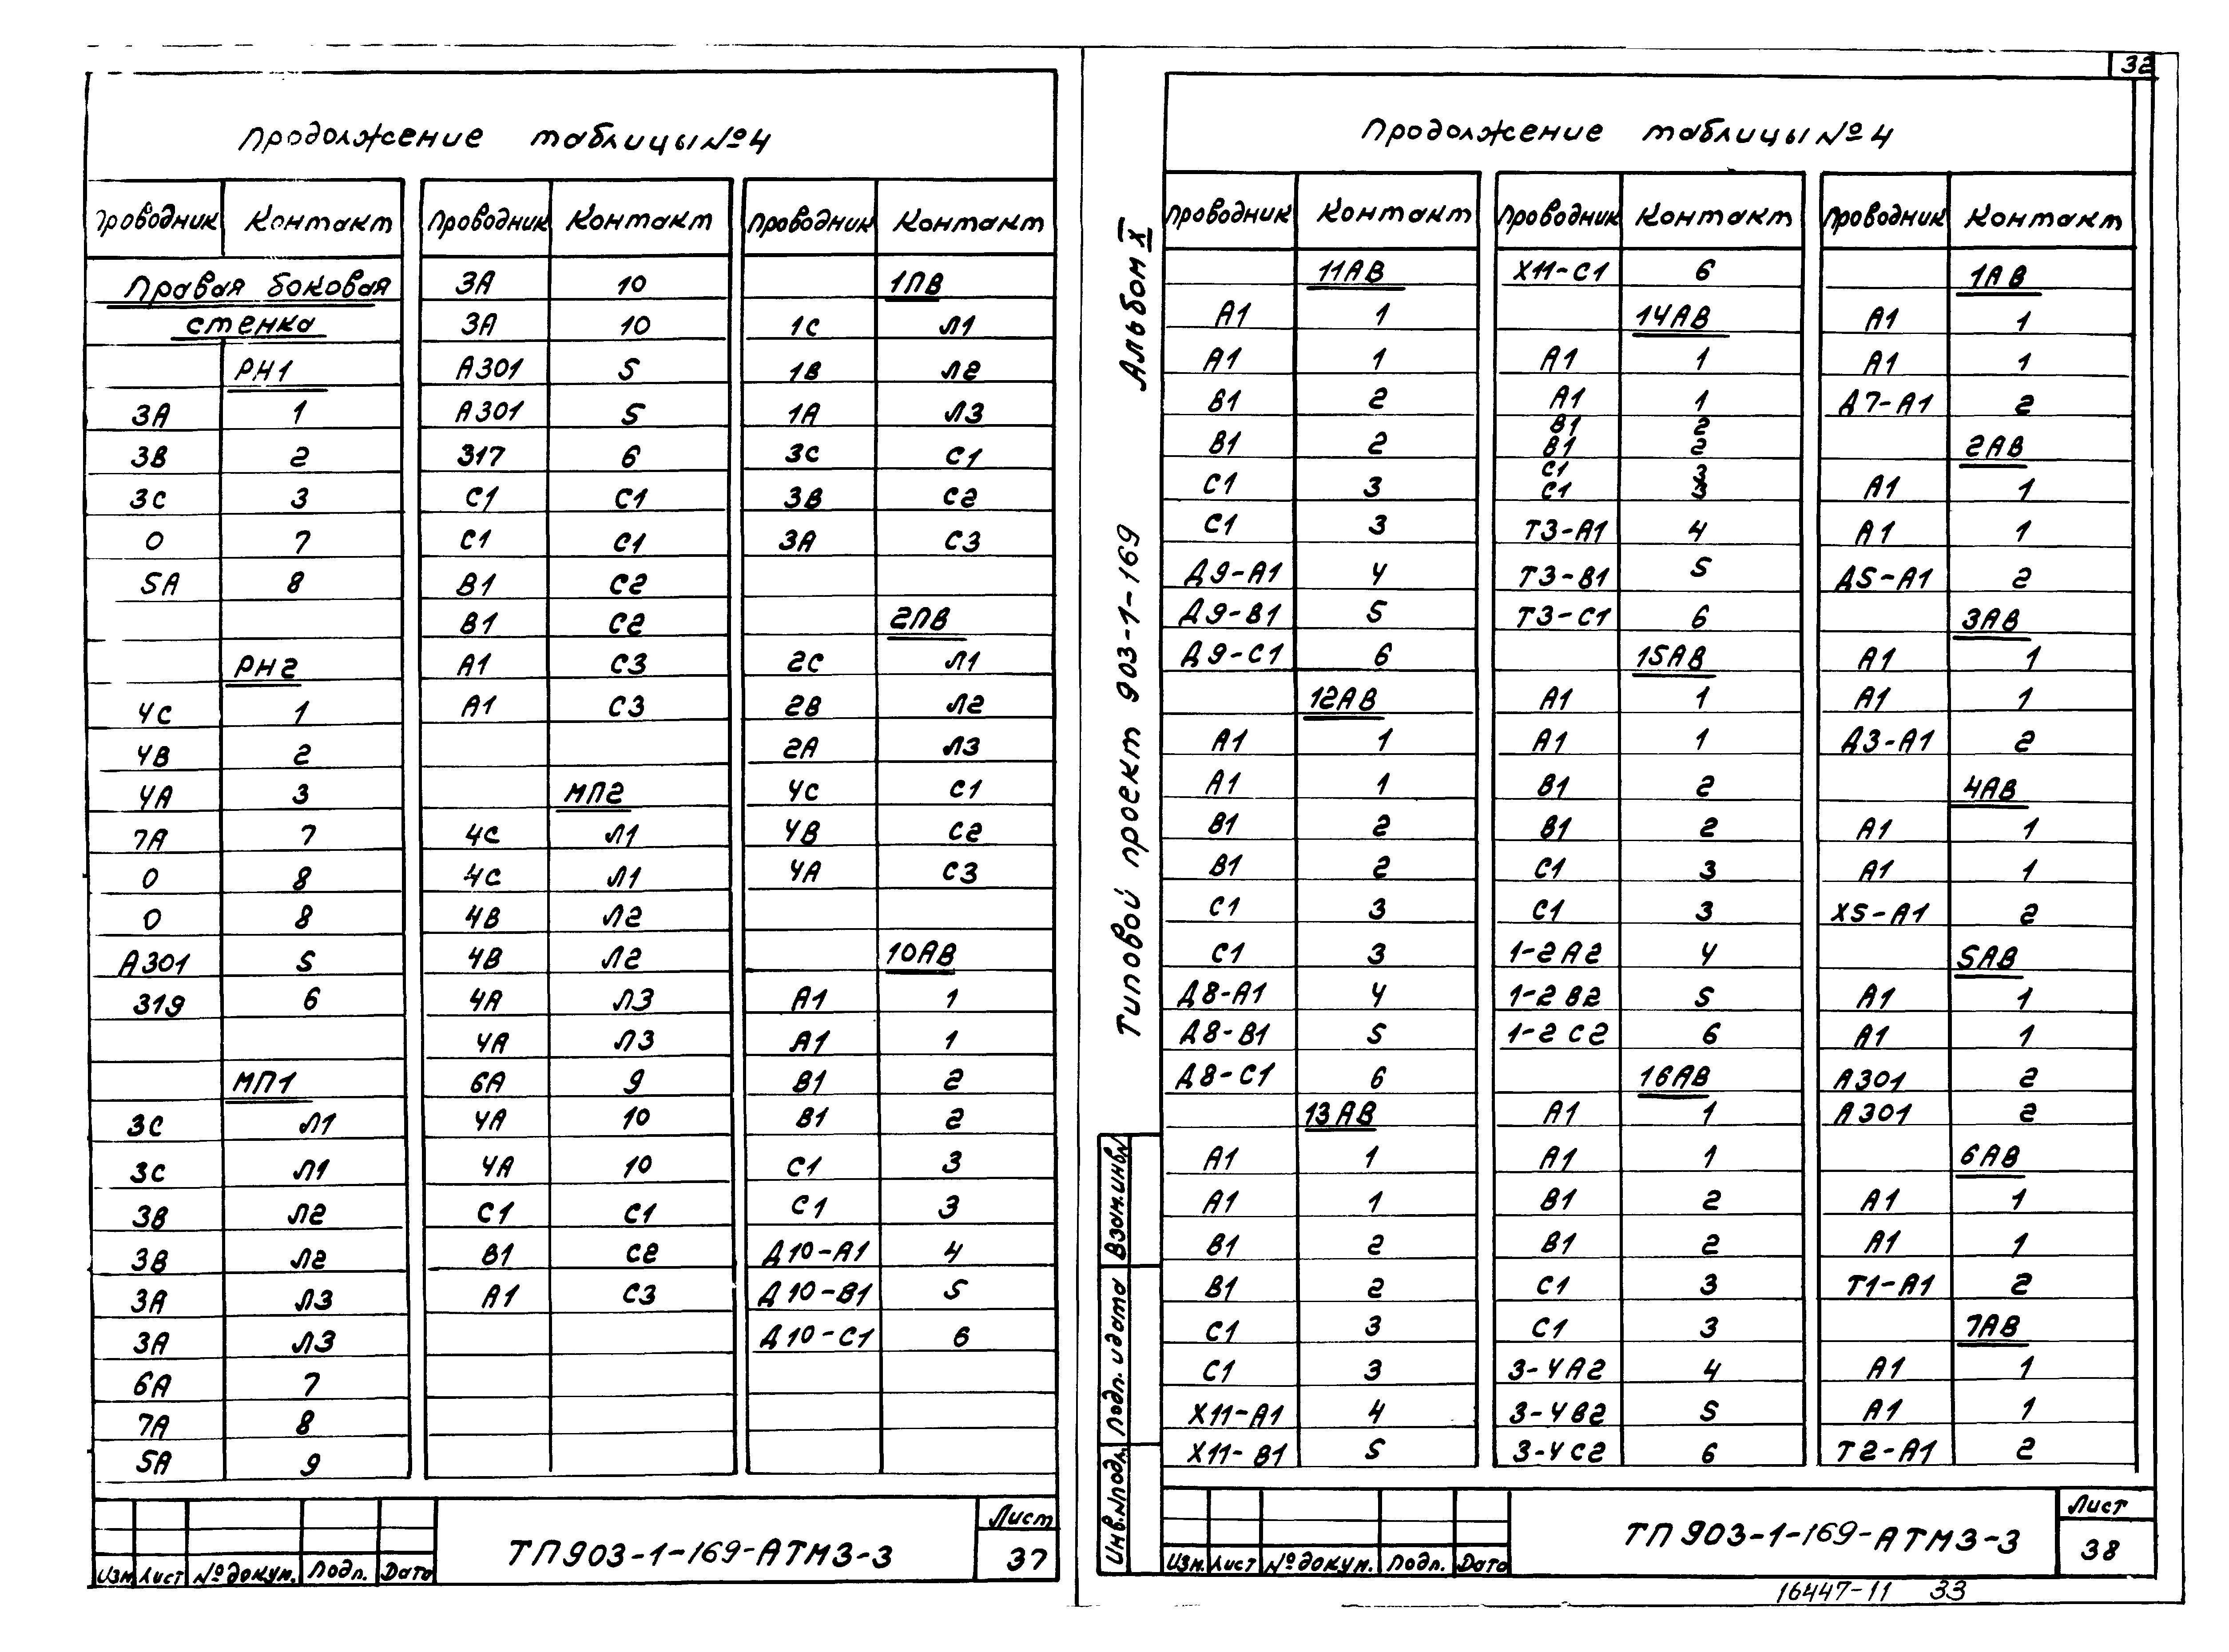 32
Продолжение таблицы №4
Проводник Контакт Проводник Контакт Проводник Контакт
Правая боковая 3А 10 1ПВ
стенка 3А 10 1С Л1
РН1 А301 5 1В Л2
3А 1 А301 5 1А Л3
3В 2 317 6 3С С1
3С 3 С1 С1 3В С2
0 7 С1 С1 3А С3
5А 8 В1 С2
В1 С2 2ПВ
РН2 А1 С3 2С Л1
4С 1 А1 С3 2В Л2
4В 2 2А Л3
4А 3 МП2 4С С1
7А 7 4С Л1 4В С2
0 8 4С Л1 4А С3
0 8 4В Л2
А301 5 4В Л2 10АВ
319 6 4А Л3 А1 1
4А Л3 А1 1
МП1 6А 9 В1 2
3С Л1 4А 10 В1 2
3С Л1 4А 10 С1 3
3В Л2 С1 С1 С1 3
3В Л2 В1 С2 Д10-А1 4
3А Л3 А1 С3 Д10-В1 5
3А Л3 Д10-С1 6
6А 7
7А 8
5А 9
Изм Лист №докум. Подп. Дата
ТП903-1-169-АТМ3-3
Лист
37
Альбом X
Типовой проект 903-1-169
Взам.инв№
Подп. и дата
Инв.№подл.
Продолжение таблицы №4
Проводник Контакт Проводник Контакт Проводник Контакт
11АВ Х11-С1 6 1АВ
А1 1 14АВ А1 1
А1 1 А1 1 А1 1
В1 2 А1 1 Д7-А1 2
В1 2
В1 2 В1 2 2АВ
С1 3
С1 3 С1 3 А1 1
С1 3 Т3-А1 4 А1 1
Д9-А1 4 Т3-В1 5 Д5-А1 2
Д9-В1 5 Т3-С1 6 3АВ
Д9-С1 6 15АВ А1 1
12АВ А1 1 А1 1
А1 1 А1 1 Д3-А1 2
А1 1 В1 2 4АВ
В1 2 В1 2 А1 1
В1 2 С1 3 А1 1
С1 3 С1 3 Х5-А1 2
С1 3 1-2А2 4 5АВ
Д8-А1 4 1-2В2 5 А1 1
Д8-В1 5 1-2С2 6 А1 1
Д8-С1 6 16АВ А301 2
13АВ А1 1 А301 2
А1 1 А1 1 6АВ
А1 1 В1 2 А1 1
В1 2 В1 2 А1 1
В1 2 С1 3 Т1-А1 2
С1 3 С1 3 7АВ
С1 3 3-4А2 4 А1 1
Х11-А1 4 3-4В2 5 А1 1
Х11-В1 5 3-4С2 6 Т2-А1 2
Изм. Лист №докум. Подп. Дата
ТП903-1-169-АТМ3-3
Лист
38
16447-11 33